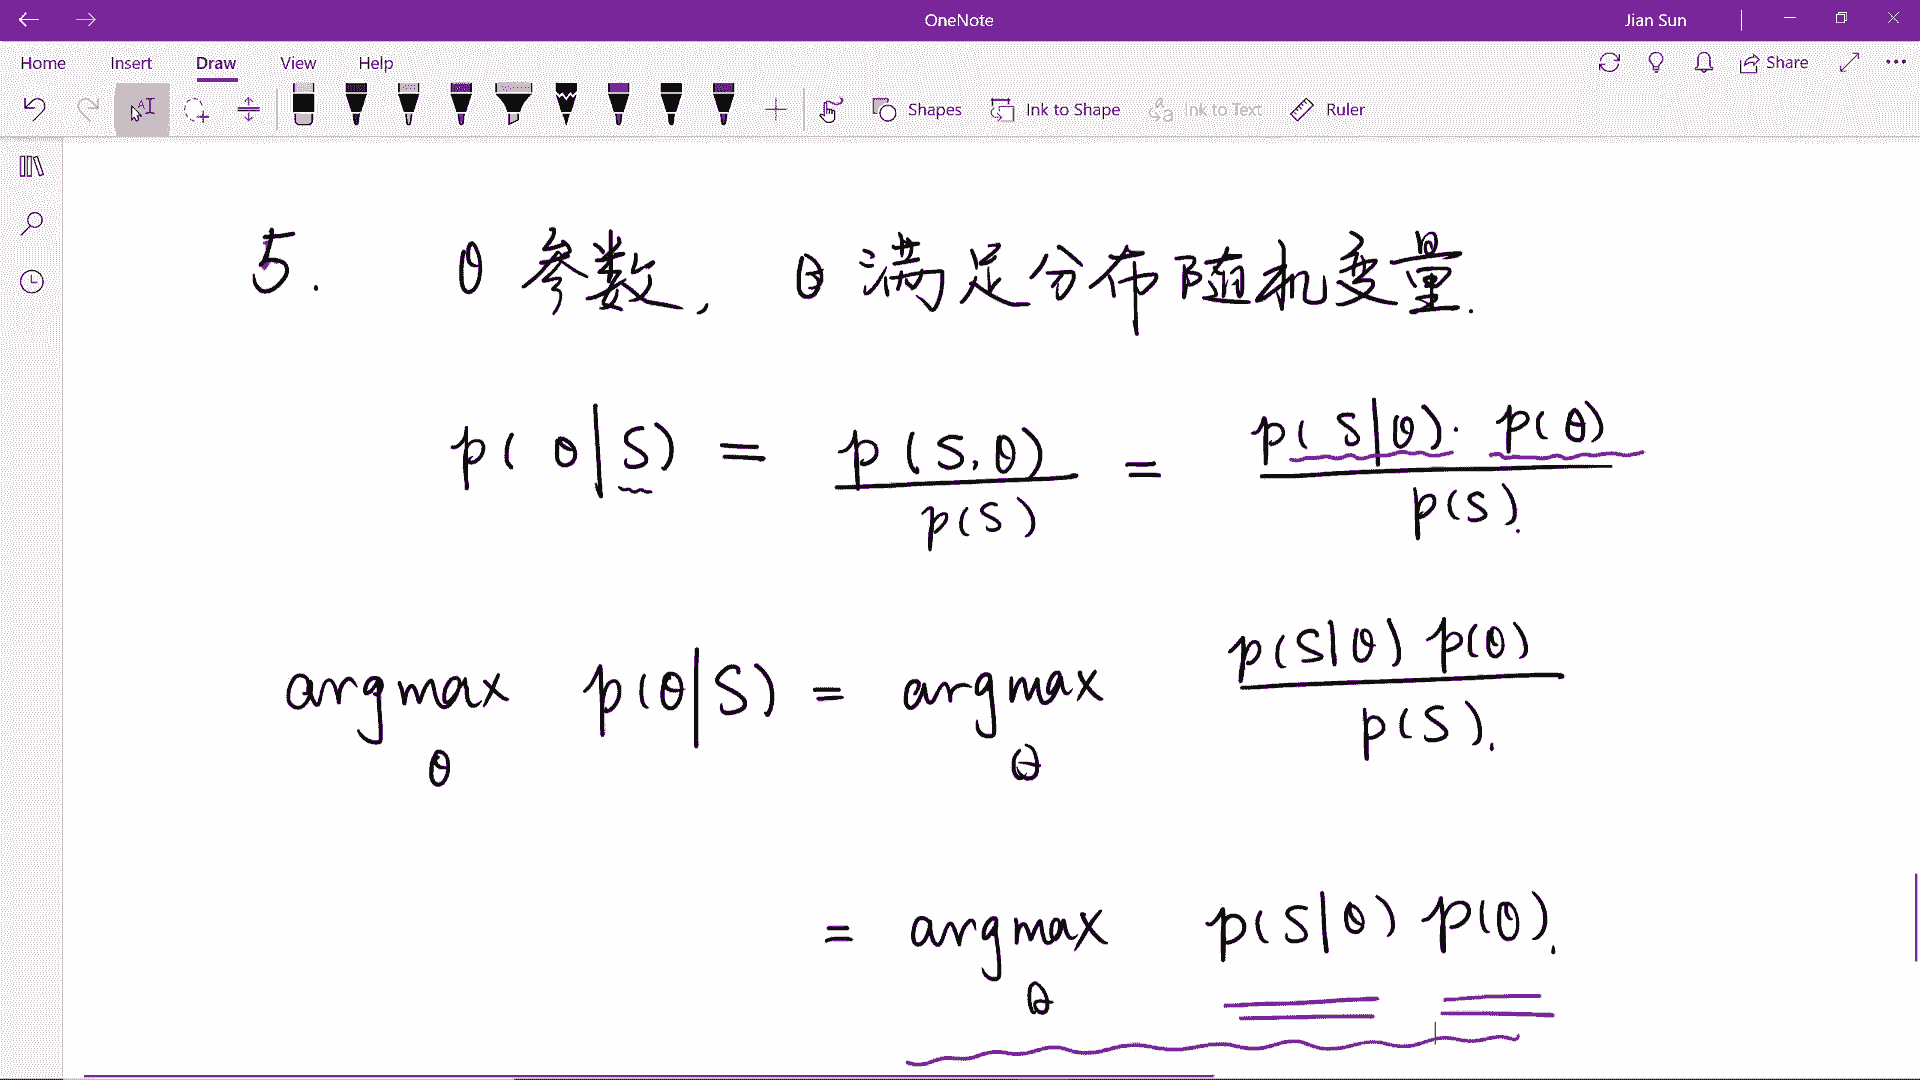 OneNote
Jian Sun
Home Insert Draw View Help
Share
Shapes Ink to Shape Ink to Text Ruler
5. θ 参数, θ 满足分布随机变量.
p(θ|S) = p(S,θ) / p(S) = p(S|θ)·p(θ) / p(S).
argmax_θ p(θ|S) = argmax_θ p(S|θ) p(θ) / p(S).
= argmax_θ p(S|θ) p(θ).